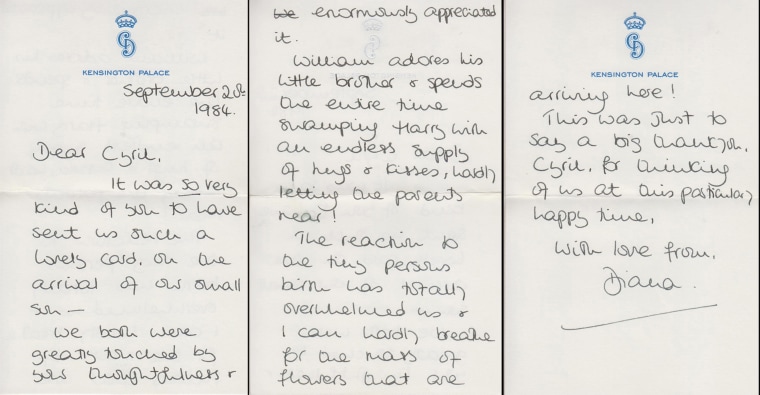 KENSINGTON PALACE
September 20th
1984.
Dear Cyril,
It was so very
kind of you to have
sent us such a
lovely card, on the
arrival of our small
son —
We both were
greatly touched by
your thoughtfulness &
We enormously appreciated
it.
William adores his
little brother & spends
the entire time
swamping Harry with
an endless supply
of hugs & kisses, hardly
letting the parents
near!
The reaction to
the tiny persons
birth has totally
overwhelmed us &
I can hardly breathe
for the mass of
flowers that are
KENSINGTON PALACE
arriving here!
This was just to
say a big thankyou,
Cyril, for thinking
of us at this particularly
happy time,
With love from,
Diana.